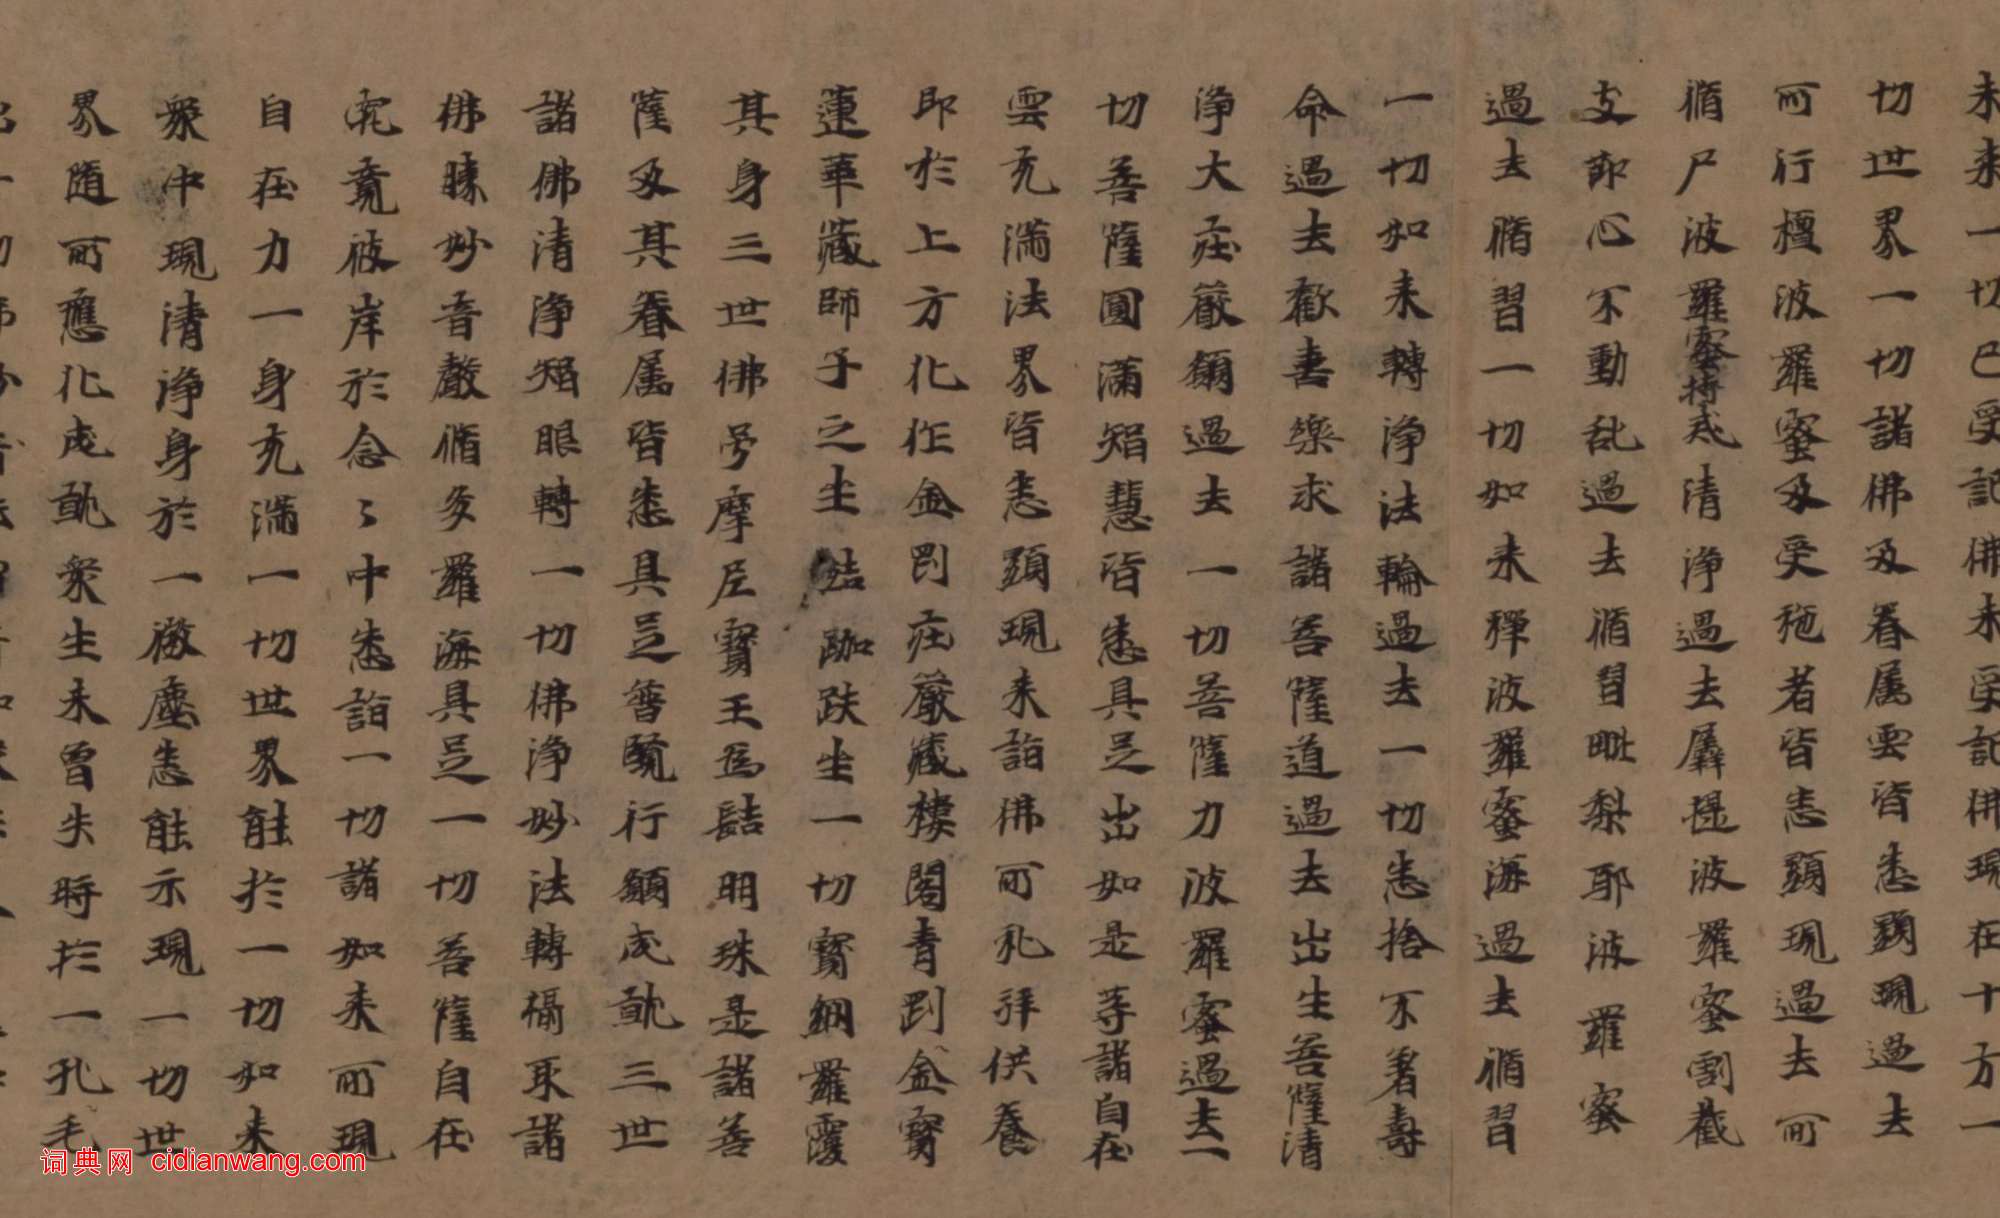 未来一切已受記佛未受記佛現在十方一
切世界一切諸佛及眷属雲皆悉顕現過去
所行檀波羅蜜及受施者皆悉顕現過去所
脩尸波羅蜜持戒清淨過去羼提波羅蜜割截
支節心不動乱過去脩習毗梨耶波羅蜜
過去脩習一切如来禪波羅蜜海過去脩習
一切如来轉淨法輪過去一切悉捨不著壽
命過去歡喜樂求諸菩薩道過去出生菩薩清
淨大莊嚴願過去一切菩薩力波羅蜜過去一
切菩薩圓滿智慧皆悉具足出如是等諸自在
雲充滿法界皆悉顕現来詣佛所礼拜供養
即於上方化作金剛莊嚴藏樓閣青剛金寶
蓮華藏師子之坐結跏趺坐一切寶網羅覆
其身三世佛号摩尼寶王為髻明珠是諸菩
薩及其眷属皆悉具足普賢行願成就三世
諸佛清淨智眼轉一切佛淨妙法轉攝取諸
佛勝妙音聲脩多羅海具足一切菩薩自在
究竟彼岸於念〻中悉詣一切諸如来所現
自在力一身充滿一切世界能於一切如来
衆中現清淨身於一微塵悉能示現一切世
界随所應化成就衆生未曾失時於一孔毛
词典网 cidianwang.com